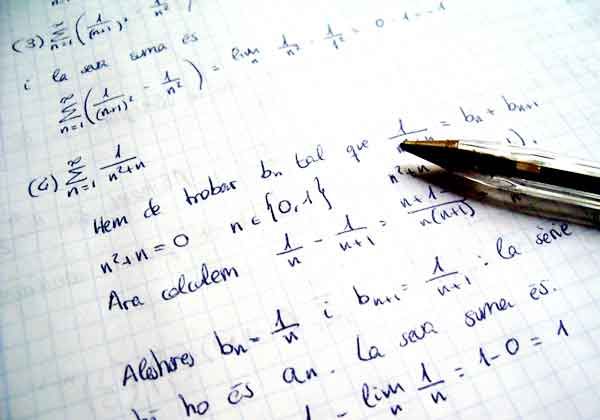 (3) ∑_{n=1}^{∞} (1/(n+1)² - 1/n²
i la seva suma és
∑_{n=1}^{∞} (1/(n+1)² - 1/n²) = lim_n 1/n² - 1/1² = 0 - 1 = -1
(4) ∑_{n=1}^{∞} 1/(n²+n)
Hem de trobar bn tal que 1/(n²+n) = bn + bn+1
n²+n=0 n ∈ {0,1}
Ara calculem 1/n - 1/(n+1) = n+1-/n(n+1)
Aleshores bn = 1/n i bn+1 = 1/(n+1) . la sèrie
ho és an. La seva suma és.
lim_n 1/n = 1-0 = 1